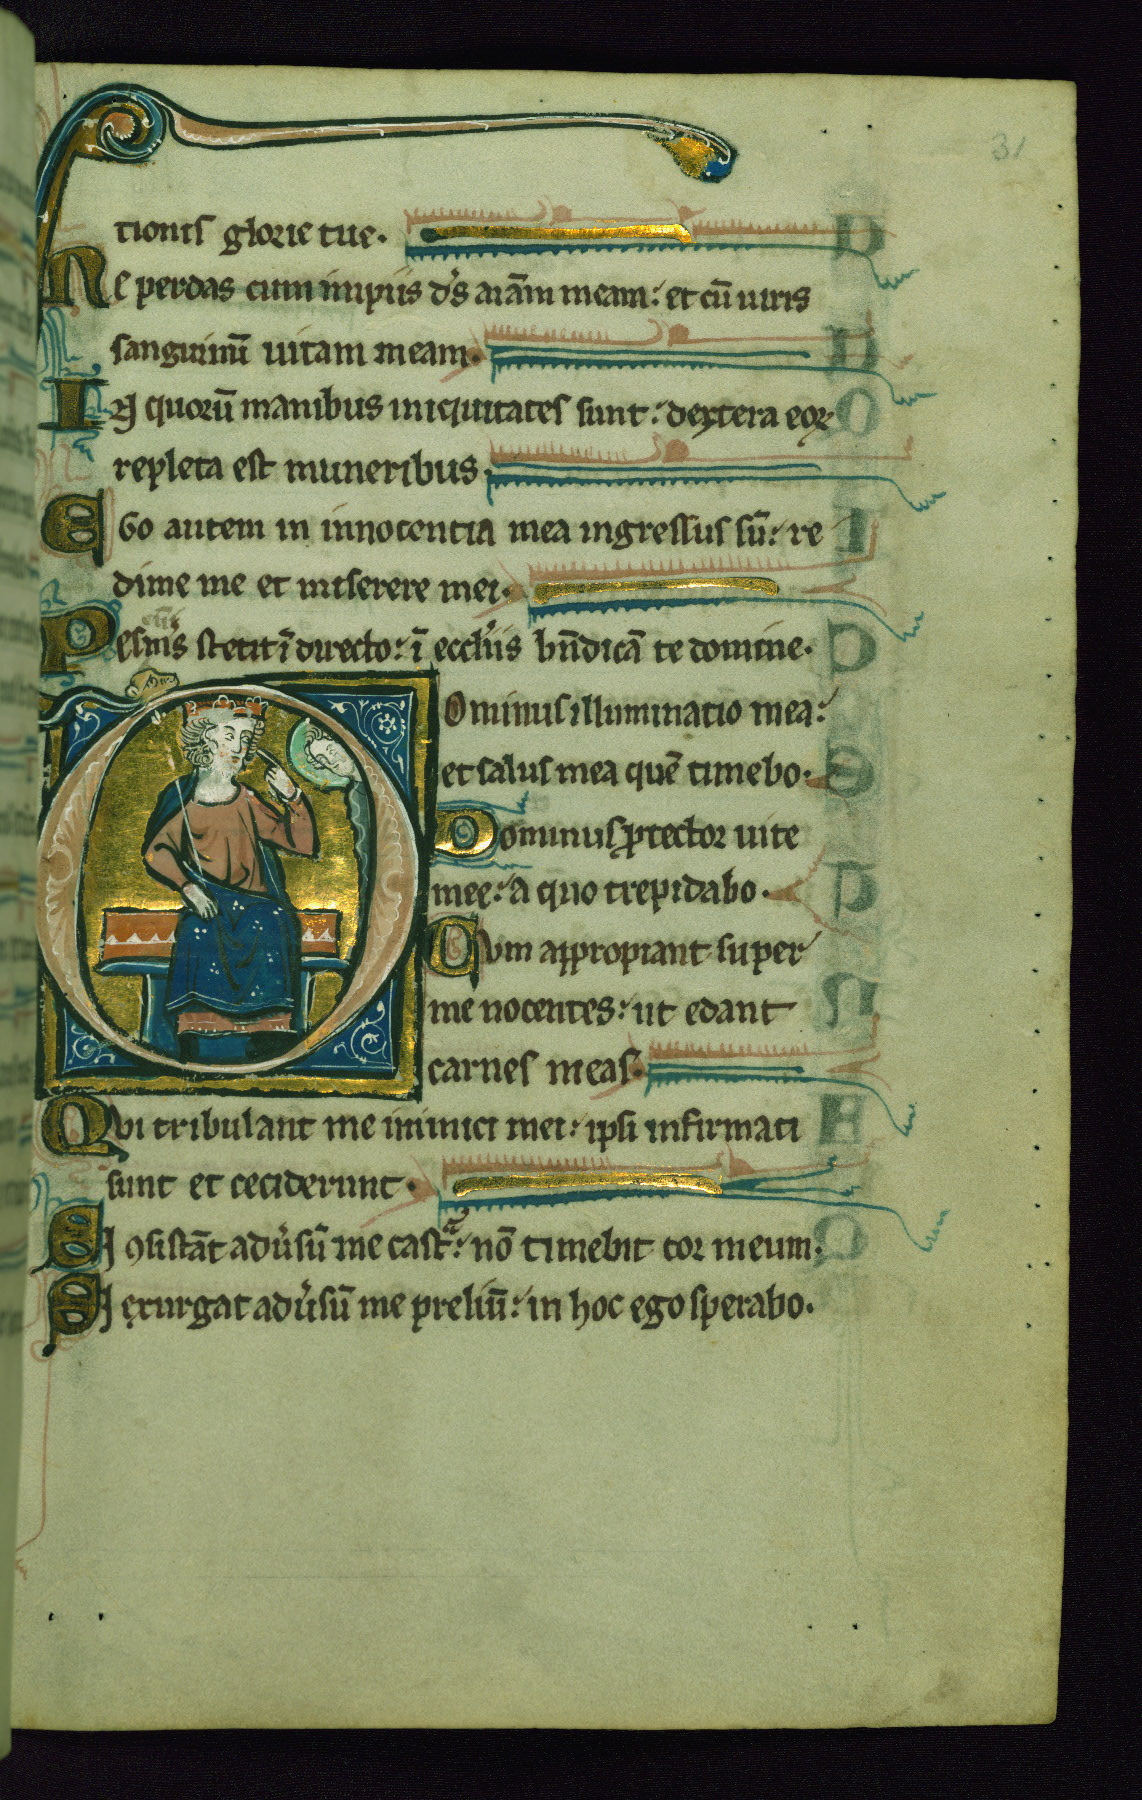 31
tionis glorie tue.
Ne perdas cum impiis d's aīam meam: et cū uiris
sanguinū uitam meam.
In quorū manibus iniquitates sunt: dextera eoꝝ
repleta est muneribus.
Ego autem in innocentia mea ingressus sū: re
dime me et miserere mei.
Pes m̄s stetit ī directo: ī eccl'iis bn̄dicā te domine.
Dominus illuminatio mea:
et salus mea quē timebo.
Dominus ꝓtector uite
mee: a quo trepidabo.
Cum appropiant super
me nocentes: ut edant
carnes meas.
Qui tribulant me inimici mei: ipsi infirmati
sunt et ceciderunt.
Si ꝯsistāt adu'sū me castͣ: nō timebit cor meum.
Si exurgat adu'sū me preliū: in hoc ego sperabo.